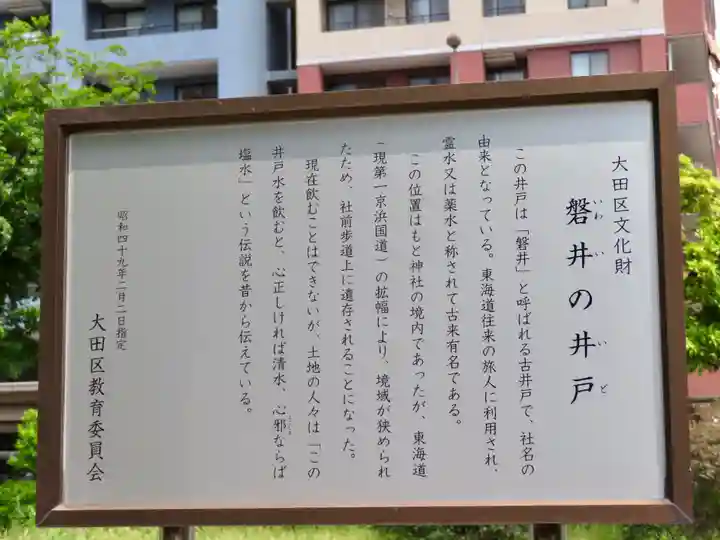 大田区文化財
磐井の井戸
いわ い い ど
この井戸は「磐井」と呼ばれる古井戸で、社名の
由来となっている。東海道往来の旅人に利用され、
霊水又は薬水と称されて古来有名である。
この位置はもと神社の境内であったが、東海道
(現第一京浜国道)の拡幅により、境域が狭められ
たため、社前歩道上に遺存されることになった。
現在飲むことはできないが、土地の人々は「この
井戸水を飲むと、心正しければ清水、心邪ならば
塩水」という伝説を昔から伝えている。
昭和四十九年二月二日指定
大田区教育委員会